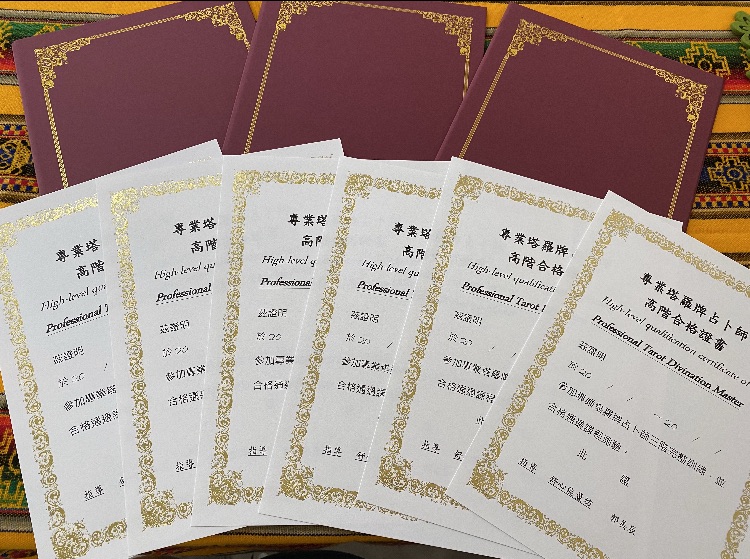 專業塔
高階
High-level qu
Professional
茲證明
於 20 /
參加專業塔
合格通過
指導
專業塔
高階
High-level qu
Professional
茲證明
於 20
參加專業
合格通過
指導
專業塔
高階
High-level qual
Professional
茲證明
於 20
參加專業
合格通過
指導
專業塔
高階
High-level qu
Professional T
茲證明
於 20 /
參加專業
合格通過課
指導
專業塔羅牌
高階合格
High-level qualification
Professional Tarot D
茲證明
於 20 / /
參加專業塔羅
合格通過課
此
指導
專業塔羅牌占卜師
高階合格證書
High-level qualification certificate o
Professional Tarot Divination Master
茲證明
於 20 / / ~ 20 / /
參加專業塔羅牌占卜師三階完整訓練，並
合格通過課程測驗，
此 證
指導